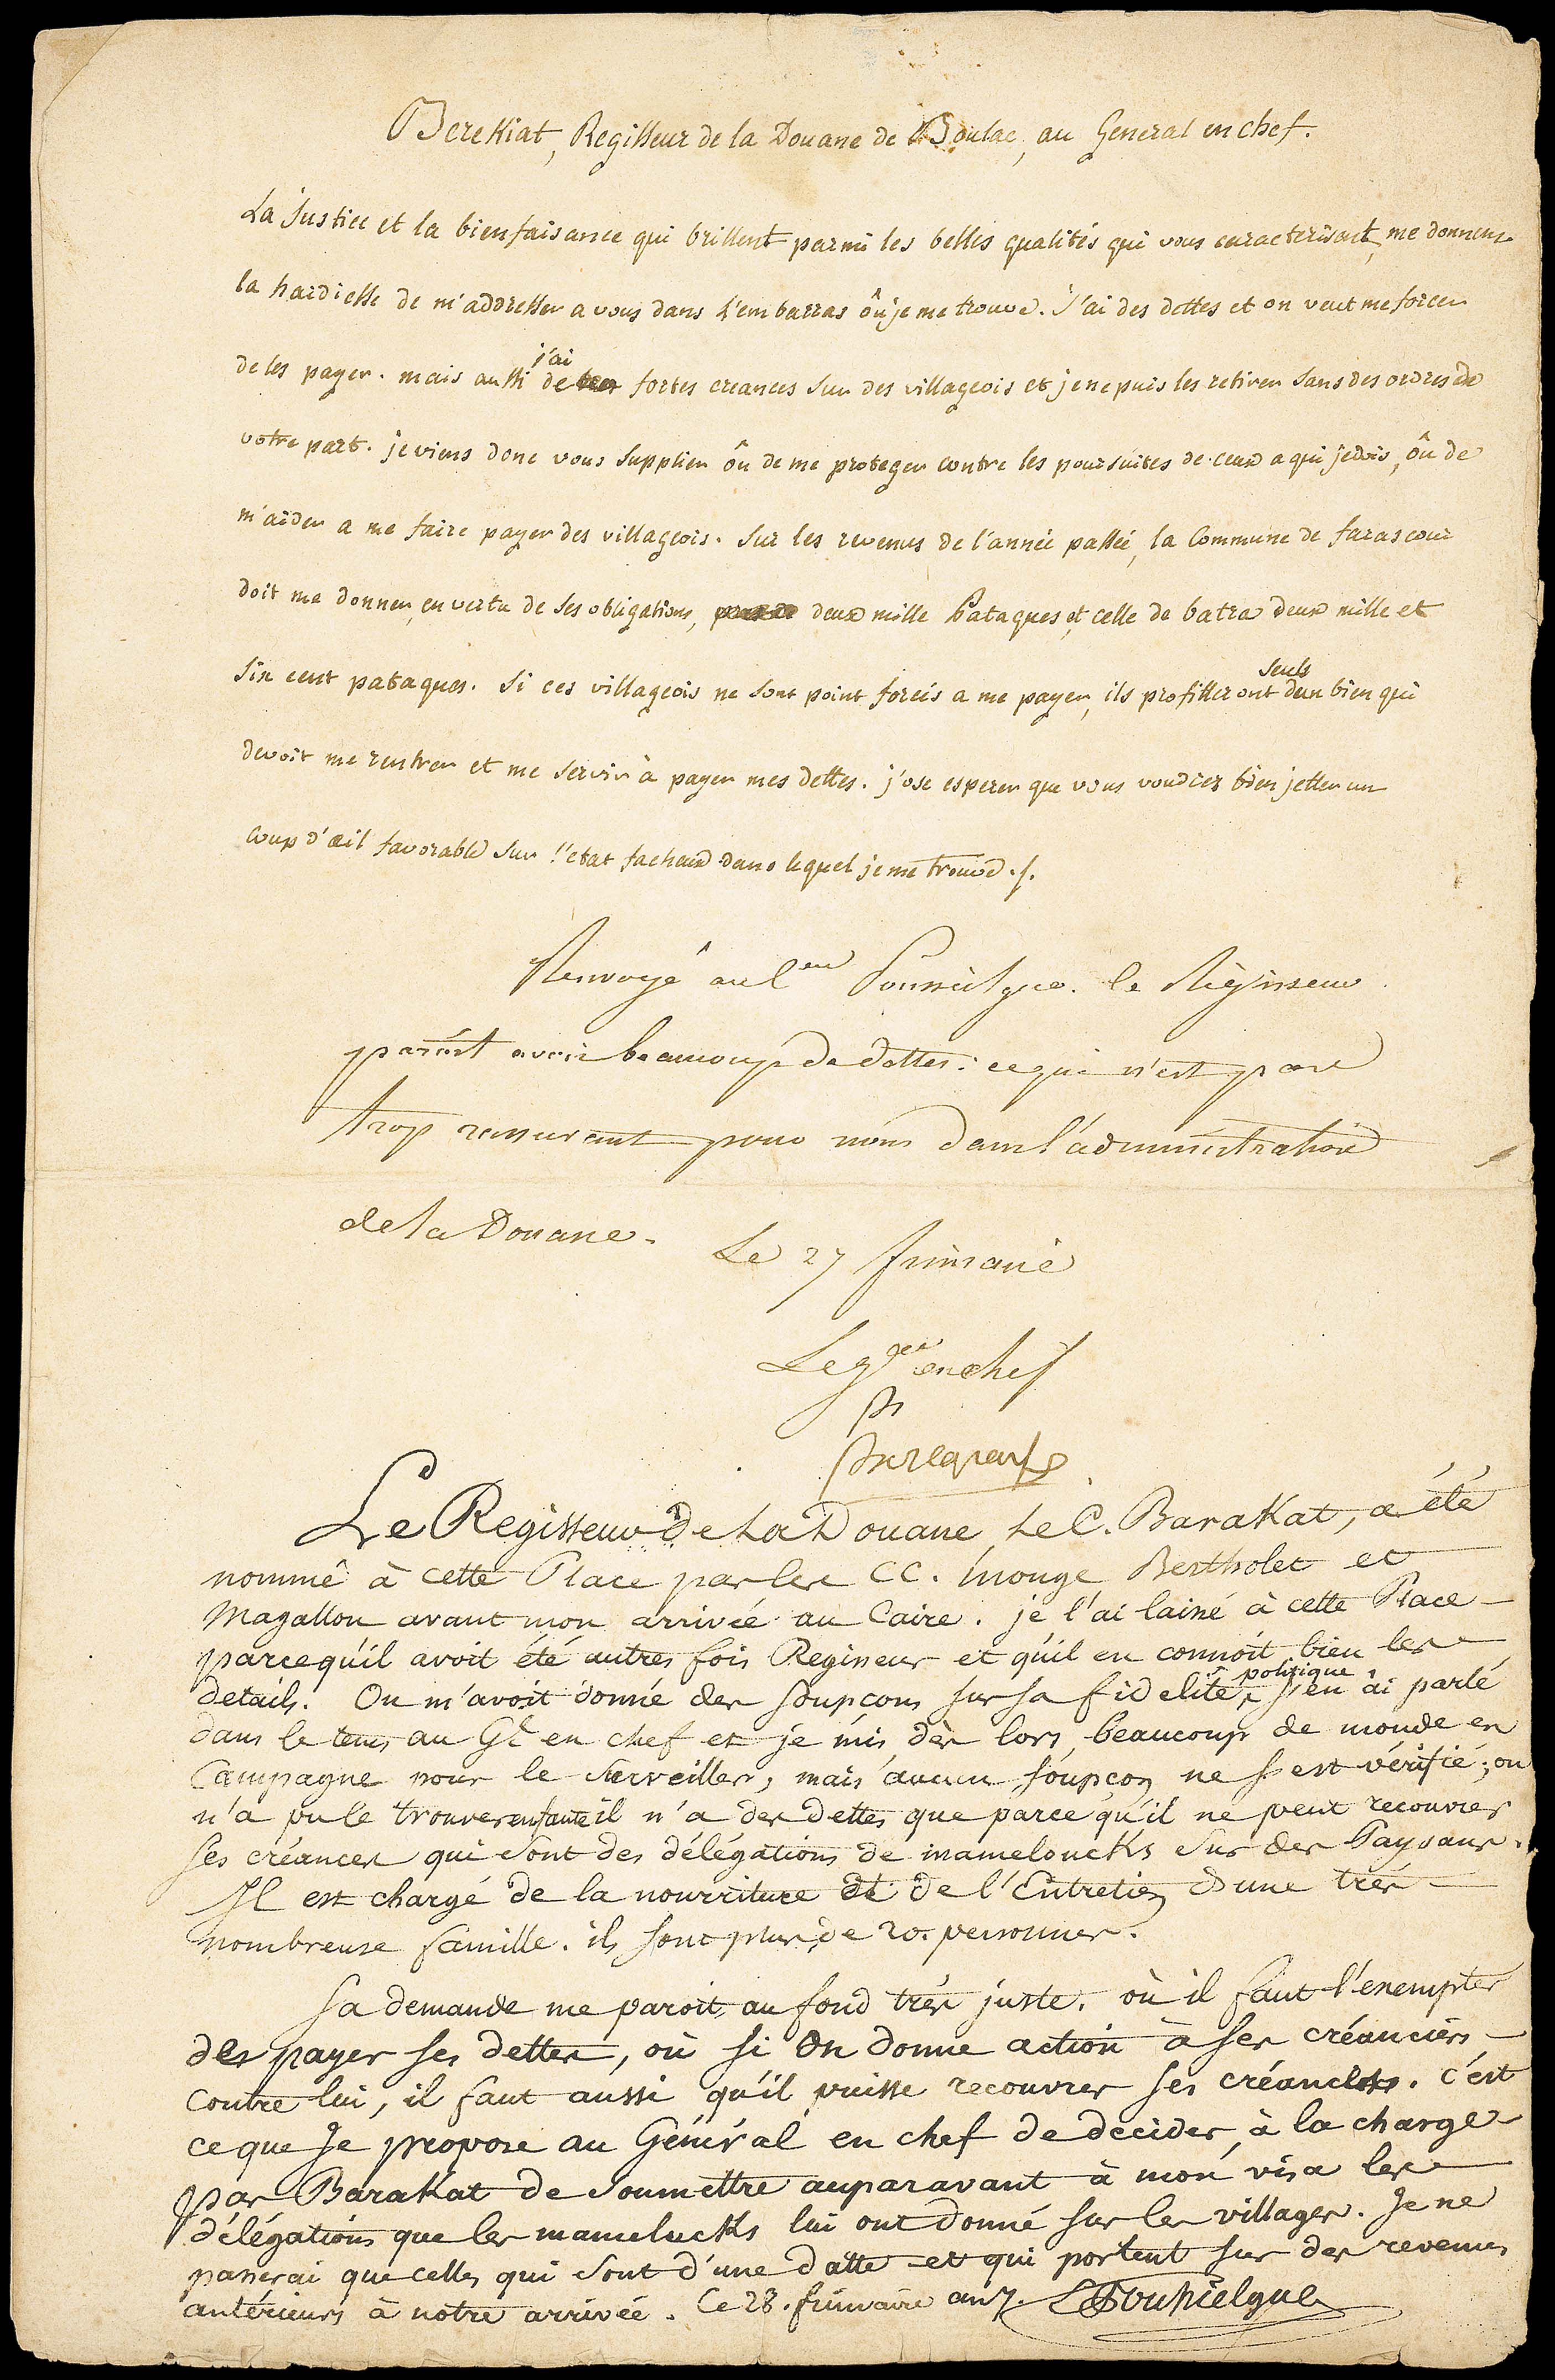 BereKiat, Regisseur de la Douane de Boulac, au General en chef.
La Justice et la bienfaisance qui brillent parmi les belles qualités qui vous caracterisent, me donnent
la hardiesse de m'addresser a vous dans l'embarras où je me trouve. J'ai des dettes et on veut me forcer
de les payer. mais aussi j'ai de fortes creances sur des villageois et je ne puis les retirer sans des ordres de
votre part. je viens donc vous supplier ôu de me proteger contre les poursuites de ceux a qui je dois, ôu de
m'aider a me faire payer des villageois. Sur les revenus de l'année passée, la Commune de farascour
doit me donner, en vertu de ses obligations, deux mille Pataques, et celle de batra deux mille et
six cent pataques. Si ces villageois ne sont point forcés a me payer, ils profitteront seuls d'un bien qui
devoit me rentrer et me servir à payer mes dettes. j'ose esperer que vous voudrez bien jetter un
coup d'œil favorable sur l'etat facheux dans lequel je me trouve ./.
Renvoyé au Cen Poussielgue. le Régisseur
paroît avoir beaucoup de dettes: ce qui n'est pas
trop rassurant pour nous dans l'administration
de la Douane.
Le 27 frimaire
Le gal en chef
Le Regisseur de La Douane, Le C. BaraKat, a été
nommé à cette Place par les CC. Monge Bertholet et
Magallon avant mon arrivée au Caire. je l'ai laissé à cette Place
parcequ'il avoit été autres fois Regisseur et qu'il en connoit bien les
details. On m'avoit donné des soupçons sur sa fidelité politique, j'en ai parlé
dans le tems au Gl en chef et je mis dès lors, beaucoup de monde en
Campagne pour le surveiller, mais aucun soupçon ne s'est vérifié; on
n'a pu le trouver en faute il n'a des dettes que parce qu'il ne peut recouvrer
ses créances qui sont des délégations de mameloucKs sur des Paysans.
Il est chargé de la nourriture et de l'Entretien d'une très
nombreuse famille. ils sont plus de 20. personnes.
Sa demande me paroit au fond très juste. où il faut l'exempter
de payer ses dettes, où si on donne action à ses créanciers
contre lui, il faut aussi qu'il puisse recouvrer ses créances. c'est
ce que Je propose au Général en chef de decider, à la charge
par BaraKat de soumettre auparavant à mon visa les
délégations que les mamelucKs lui ont donné sur les villages. Je ne
passerai que celles qui sont d'une datte et qui portent sur des revenus
antérieurs à notre arrivée. Ce 28. frimaire an 7. E Poussielgue